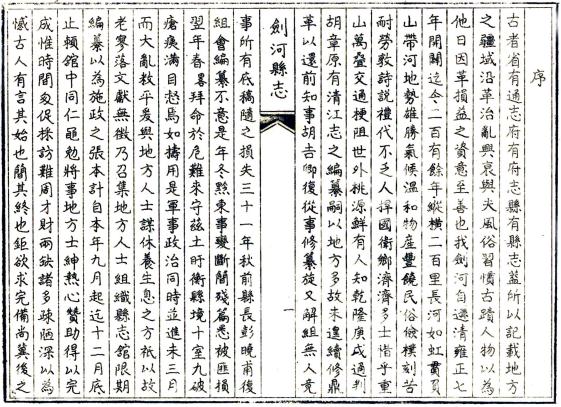 序
古者省有通志府有府志縣有縣志蓋所以記載地方
之疆域沿革治亂興衰與夫風俗習慣古蹟人物以為
他日因革損益之資意至善也我劍河自遜清雍正七
年開闢迄今二百有餘年縱橫二百里長河如虹貫
山帶河地勢雄勝氣候溫和物產豐饒民俗儉樸刻苦
耐勞敦詩說禮代不乏人捍國衛鄉濟濟多士惜乎重
山萬疊交通梗阻世外桃源鮮有人知乾隆庚戌通判
胡章原有清江志之編纂嗣以地方多故未遑續修鼎
革以還前知事胡吉卿復從事修纂旋又解組無人竟
劍河縣志
一
事所有底稿隨之損失三十一年秋前縣長彭曉甫復
組會編纂不意是年冬黔東事變斷簡殘篇悉被匪搗
翌年春畧拜命於危難來守茲土旴衡縣境十室九破
瘡痍滿目惄焉如擣用是軍事政治同時並進未三月
而大亂敉平爰與地方人士謀休養生息之方祇以故
老寥落文獻無徵乃召集地方人士組織縣志館限期
編纂以為施政之張本計自本年九月起迄十二月底
止賴館中同仁黽勉將事地方士紳熱心贊助得以完
成惟時間匆促採訪難周才財兩缺諸多疎陋深以為
憾古人有言其始也簡其終也鉅欲求完備尚冀後之